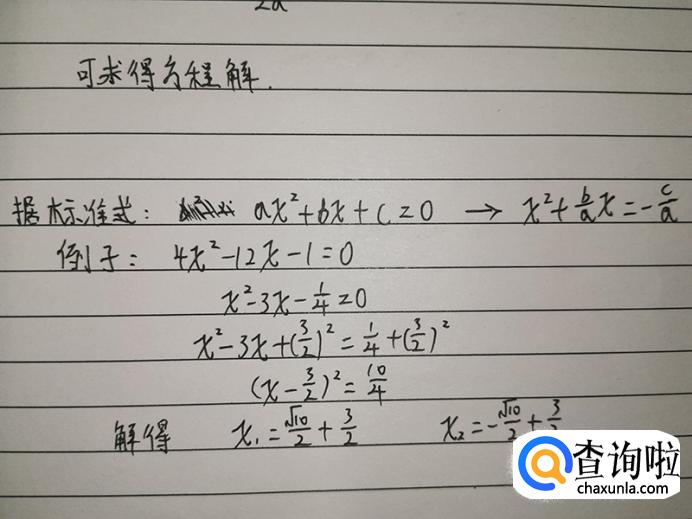 2a
可求得方程解.
据标准式: ax²+bx+c=0 → x²+b/a x=-c/a
例子: 4x²-12x-1=0
x²-3x-1/4=0
x²-3x+(3/2)²=1/4+(3/2)²
(x-3/2)²=10/4
解得 x₁=√10/2+3/2 x₂=-√10/2+3/2
查询啦
chaxunla.com